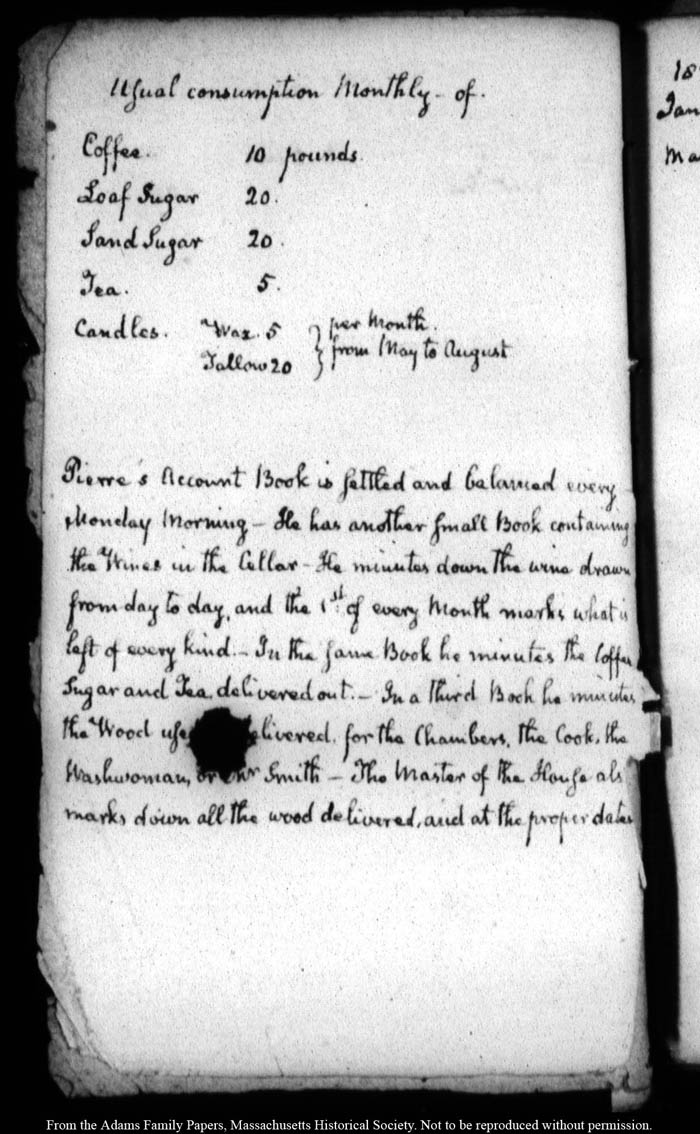 Usual consumption Monthly - of.
Coffee. 10 pounds.
Loaf Sugar 20.
Sand Sugar 20.
Tea. 5.
Candles. Wax. 5 } per Month.
Tallow 20 } from May to August
Pierre's Account Book is settled and balanced every
Monday Morning – He has another small Book containing
the Wines in the Cellar – He minutes down the wine drawn
from day to day, and the 1st. of every Month marks what is
left of every kind. – In the same Book he minutes the Coffee
Sugar and Tea delivered out. – In a third Book he minutes
the Wood use elivered. for the Chambers, the Cook, the
Washwoman, or Mr Smith – The Master of the House als
marks down all the wood delivered, and at the proper dates
18
Jan
Ma
From the Adams Family Papers, Massachusetts Historical Society. Not to be reproduced without permission.